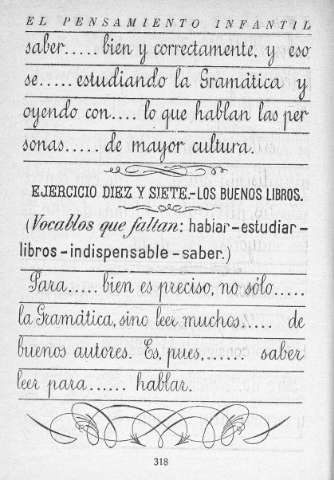 EL PENSAMIENTO INFANTIL
saber..... bien y correctamente, y eso
se..... estudiando la Gramática y
oyendo con.... lo que hablan las per
sonas..... de mayor cultura.
EJERCICIO DIEZ Y SIETE.-LOS BUENOS LIBROS.
(Vocablos que faltan: hablar-estudiar-
libros-indispensable-saber.)
Para..... bien es preciso, no sólo.....
la Gramática, sino leer muchos..... de
buenos autores. Es, pues,....... saber
leer para..... hablar.
318